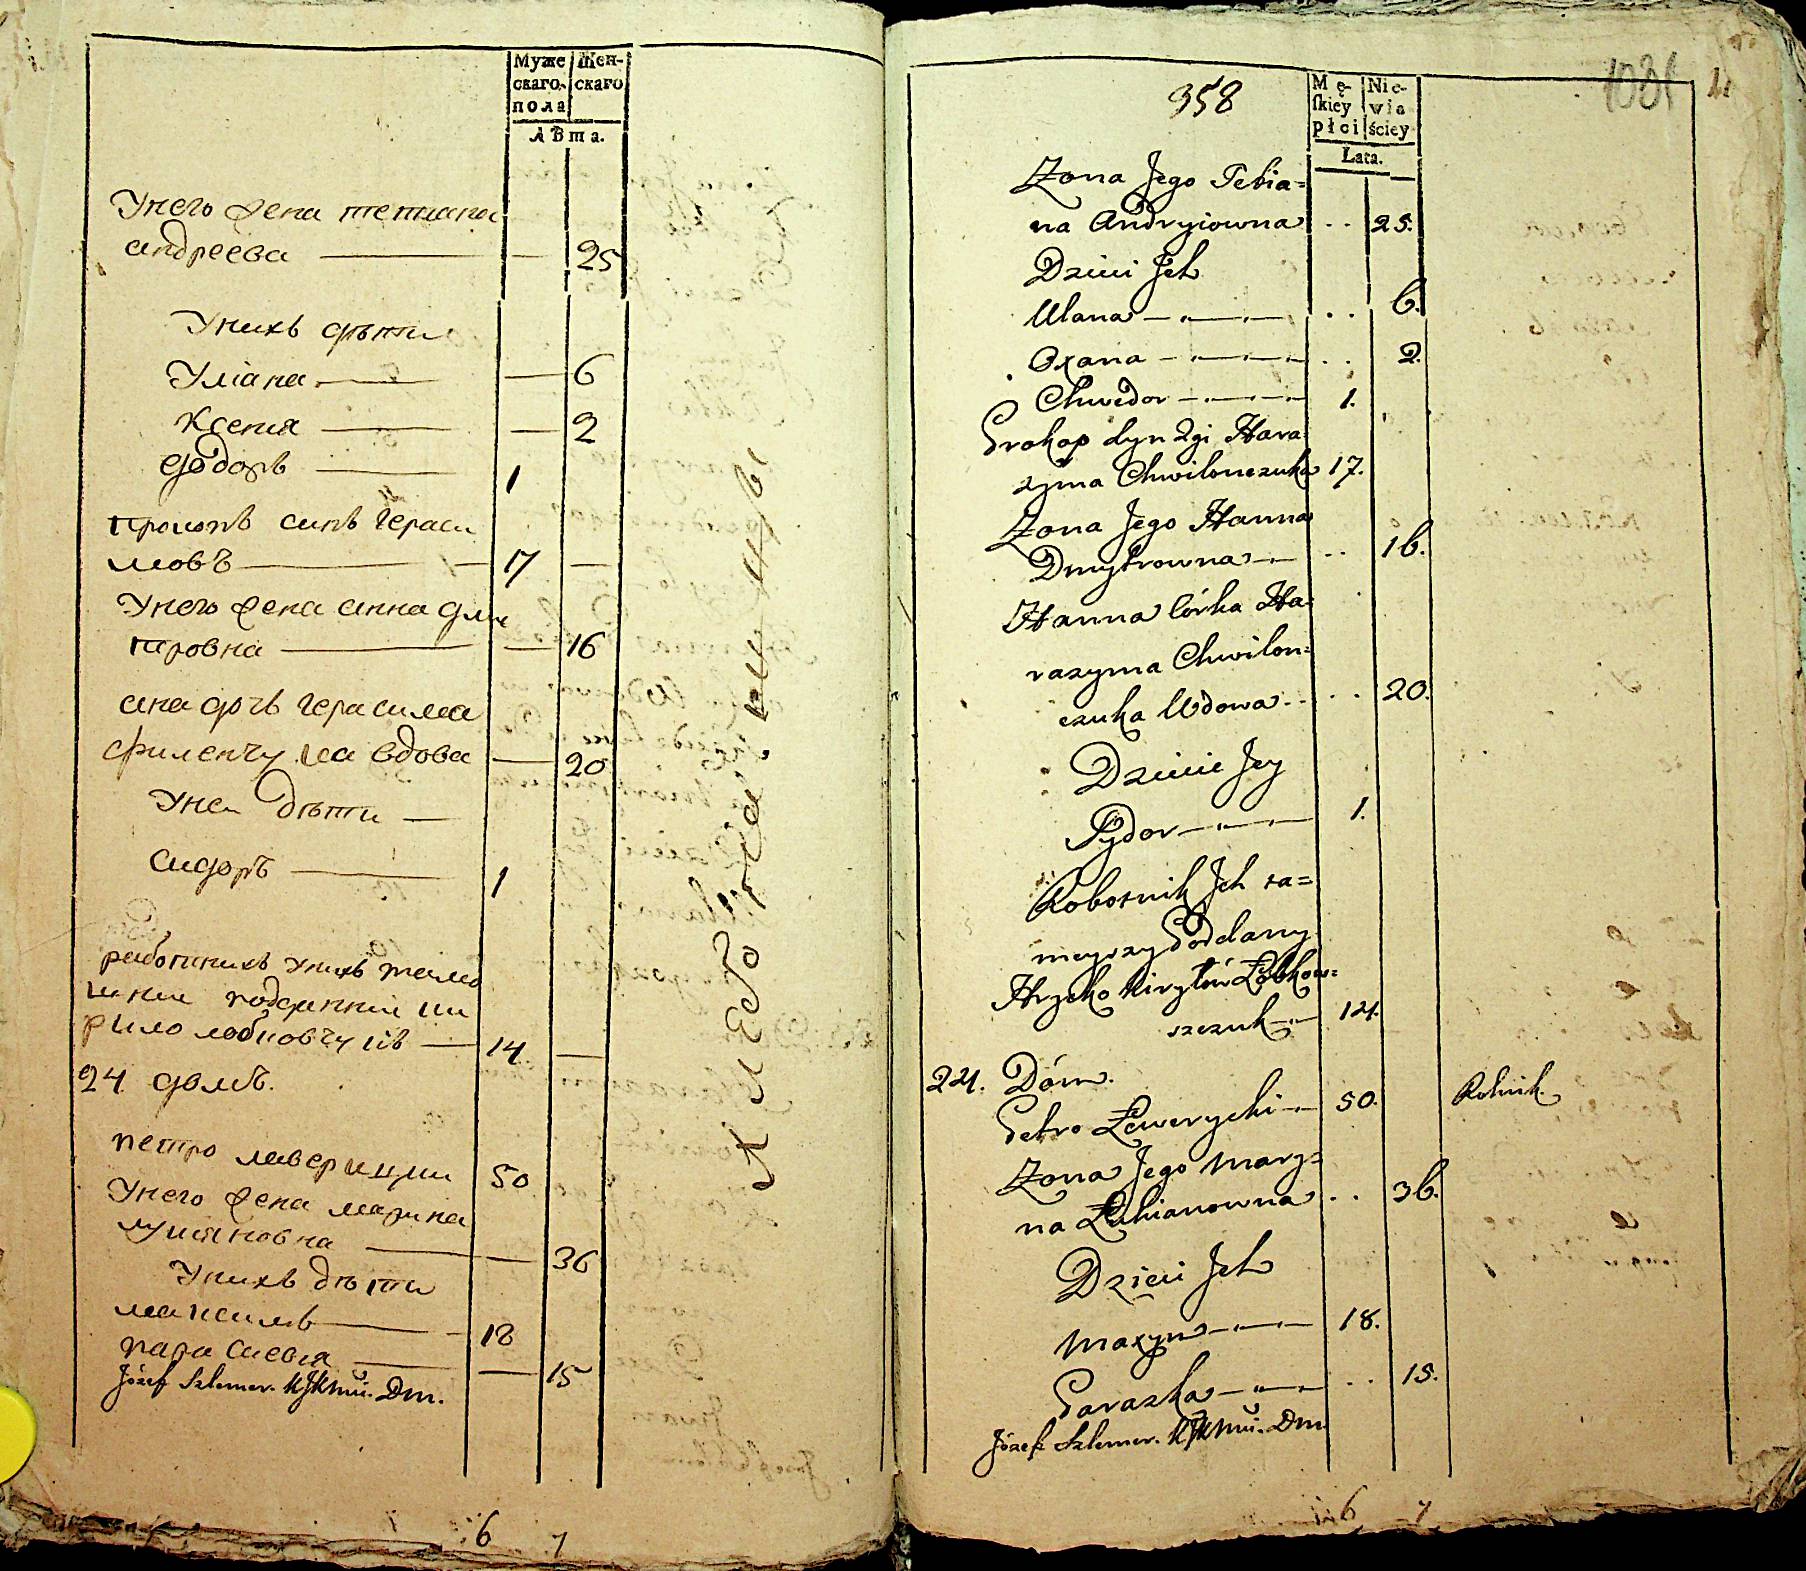 Муже
скаго
пола
Жен-
скаго
ЛѢта.
Унего жена тетиана
андреева 25
Унихъ дѣти
Улiана 6
Ксения 2
Ѳедоръ 1
прокопъ синъ гераси
мовъ 17
Унего жена анна дми
тровна 16
ана дочъ герасима
филенчука вдова 20
Унеи дѣти
сидоръ 1
работникъ унихъ тамо
шнии подданнии ки
рило лобковчукъ 14
24 домъ.
петро маверицкии 50
Унего жена марина
лукiяновна 36
Унихъ дѣти
максимъ 18
параскевия 15
Józef Szlemer. KJKMći. Dm.
6 7
358
1031
Mę-
skiey
płci
Nie-
wia
ściey
Lata.
Zona Jego Tetia=
na Andryiowna .. 25.
Dzieci Jch
Ulana .. 6.
Oxana .. 2.
Chwedor 1.
Prokop syn 2gi Hara
zyma Chwilonczuka 17.
Zona Jego Hanna
Dmytrowna .. 16.
Hanna Córka Ha=
razyma Chwilon=
czuka Wdowa .. 20.
Dziecie Jey
Sydor 1.
Robotnik Jch ta=
meyszy Poddany
Hryćko Kiryłów Łobkow=
szczuk 14.
24. Dóm.
Petro Ławerycki 50. Rolnik.
Zona Jego Mary=
na Łukianowna .. 36.
Dzieci Jch
Maxym 18.
Paraszka .. 15.
Józef Szlemer. KJKMći. Dm.
6 7